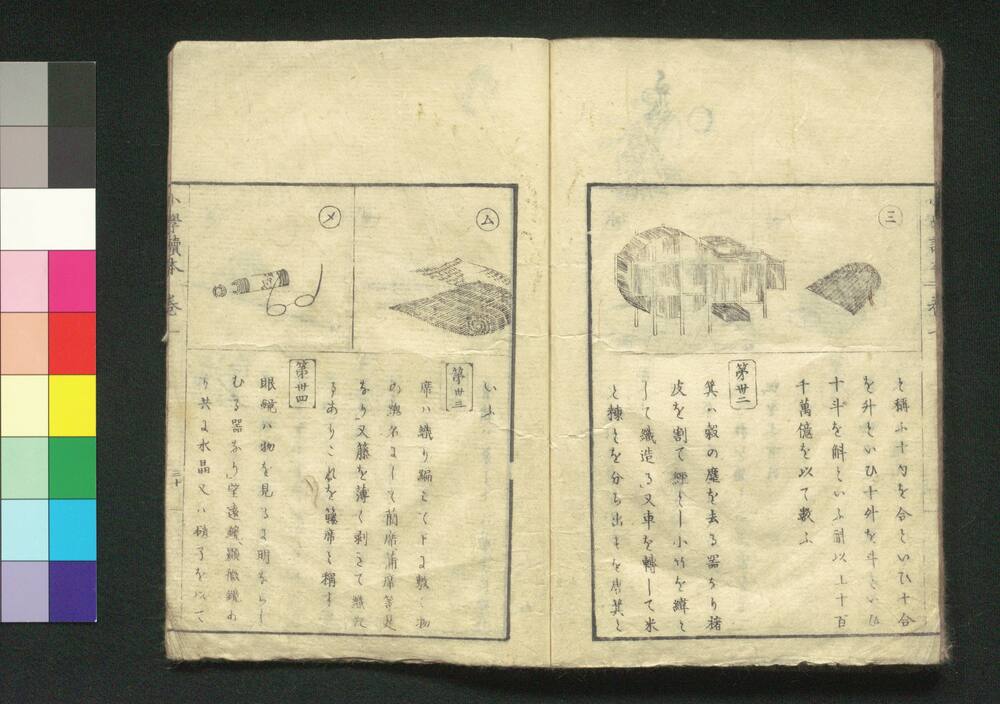 三
と稱ふ十勺を合といひ十合
を升といひ十升を斗といひ
十斗を斛といふ計以上十百
千萬億を以て數ふ
第卅二
箕ハ穀の塵を去る器なり
皮を割て經とし小竹を緯と
して織造る又車を轉して米
と糠とを分ち出すを唐箕と
いふ
ム
第卅三
席ハ織り編て下に敷く物
の總名にして藺席蒲席等是
なり又藤を薄く剥きて織
るありこれを籐席と稱す
メ
第卅四
眼鏡ハ物を見るに明ならし
むる器なり望遠鏡顯微鏡あ
り共に水晶又ハ硝子を以て
小學讀本 卷一
三十